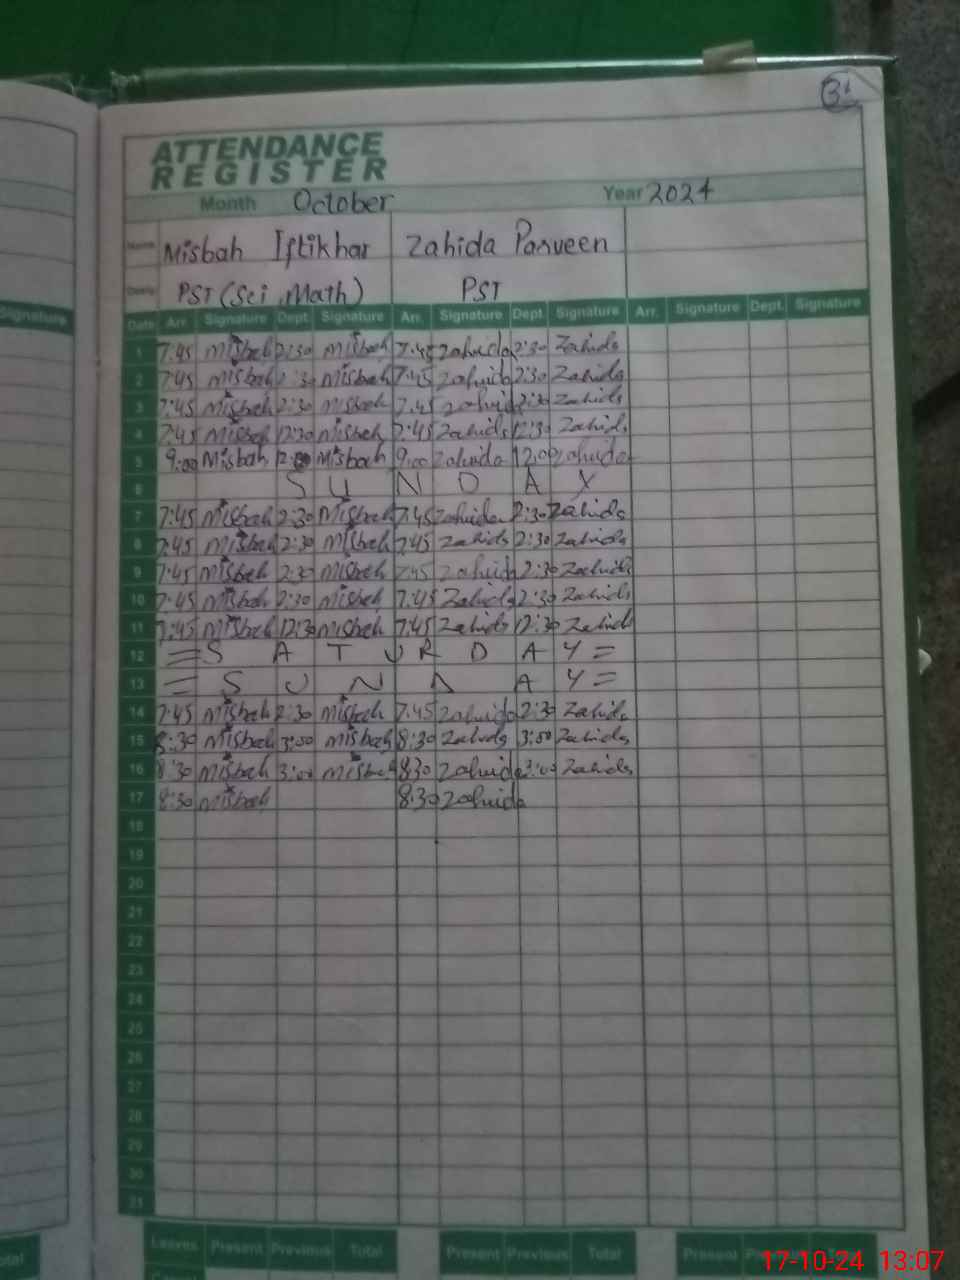 31
ATTENDANCE
REGISTER
Month October Year 2024
Name Misbah Iftikhar Zahida Parveen
PST (Sci, Math) PST
Signature
Date Arr. Signature Dept. Signature Arr. Signature Dept. Signature Arr. Signature Dept. Signature
1 7:45 Misbah 2:30 Misbah 7:45 Zahida 2:30 Zahida
2 7:45 Misbah 2:30 Misbah 7:45 Zahida 2:30 Zahida
3 7:45 Misbah 2:30 Misbah 7:45 Zahida 2:30 Zahida
4 7:45 Misbah 12:30 Misbah 7:45 Zahida 12:30 Zahida
5 9:00 Misbah 12:00 Misbah 9:00 Zahida 12:00 Zahida
6 S U N D A Y
7 7:45 Misbah 2:30 Misbah 7:45 Zahida 2:30 Zahida
8 7:45 Misbah 2:30 Misbah 7:45 Zahida 2:30 Zahida
9 7:45 Misbah 2:30 Misbah 7:45 Zahida 2:30 Zahida
10 7:45 Misbah 2:30 Misbah 7:45 Zahida 2:30 Zahida
11 7:45 Misbah 12:30 Misbah 7:45 Zahida 12:30 Zahida
12 = S A T U R D A Y =
13 = S U N D A Y =
14 7:45 Misbah 2:30 Misbah 7:45 Zahida 2:30 Zahida
15 8:30 Misbah 3:00 Misbah 8:30 Zahida 3:00 Zahida
16 8:30 Misbah 3:00 Misbah 8:30 Zahida 3:00 Zahida
17 8:30 Misbah 8:30 Zahida
18
19
20
21
22
23
24
25
26
27
28
29
30
31
Leaves Present Previous Total Present Previous Total Present
17-10-24 13:07